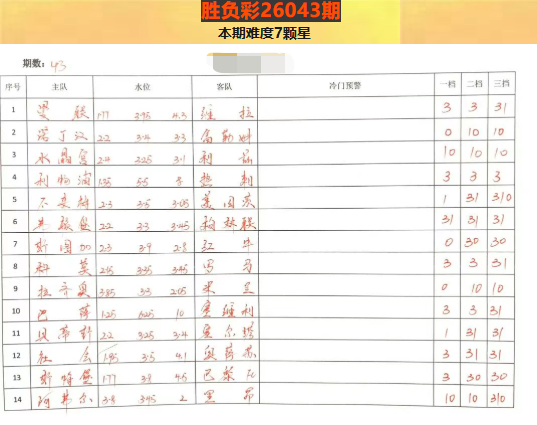 胜负彩26043期
本期难度7颗星
期数: 43
序号 主队 水位 客队 冷门预警 一档 二档 三档
1 曼联 1.77 3.95 4.3 维拉 3 3 31
2 诺丁汉 2.2 3.4 3.3 富勒姆 0 10 10
3 水晶宫 2.4 利兹 10 10 10
4 利物浦 热刺 3 3 3
5 不莱梅 2.3 3.5 美因茨 1 31 310
6 弗赖堡 2.2 3.3 柏林联 31 31 31
7 斯图加 2.3 3.9 2.8 红牛 0 30 30
8 科莫 罗马 3 3 31
9 拉齐奥 3.85 3.3 2.05 米兰 0 10 10
10 巴萨 1.25 6.25 10 塞维利 3 3 31
11 贝蒂斯 2.2 3.25 3.4 塞尔塔 1 31 31
12 社会 1.95 3.5 4.1 奥萨苏 3 31 31
13 斯特堡 1.77 3.8 4.5 巴黎FC 3 30 30
14 阿弗尔 3.8 3.45 2 里昂 10 10 310